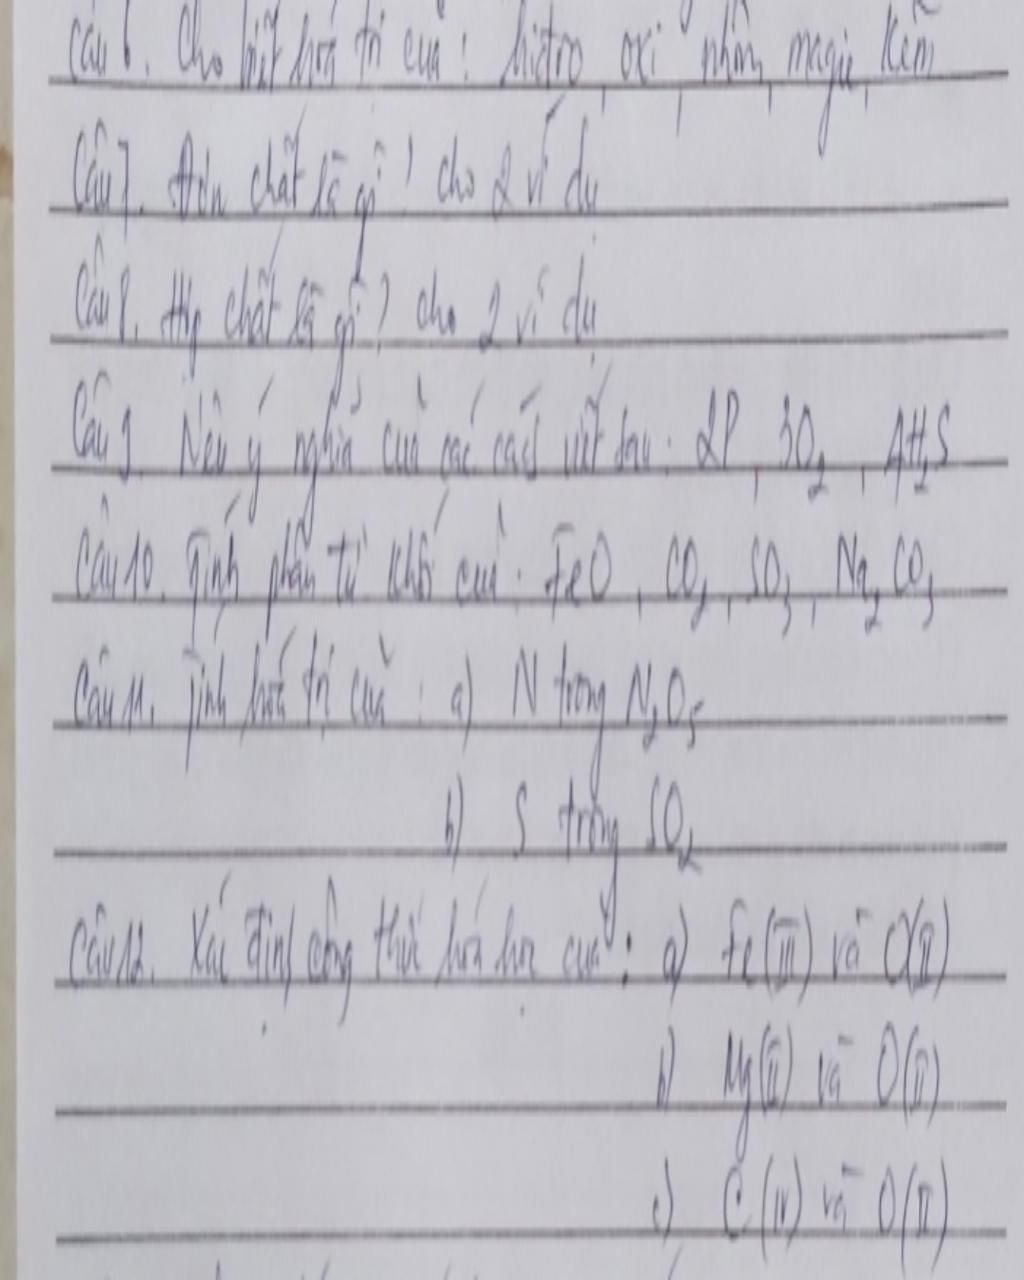 Câu 6. Cho biết hoá trị của: hiđro, oxi, nhôm, magie, kẽm
Câu 7. Đơn chất là gì? cho 2 ví dụ
Câu 8. Hợp chất là gì? cho 2 ví dụ
Câu 9. Nêu ý nghĩa của các cách viết sau: 2P, 3O₂, 4H₂S
Câu 10. Tính phân tử khối của: FeO, CO₂, SO₃, Na₂CO₃
Câu 11. Tính hoá trị của: a) N trong N₂O₅
b) S trong SO₂
Câu 12. Xác định công thức hóa học của: a) Fe(III) và O(II)
b) Mg(II) và O(II)
c) C(IV) và O(II)